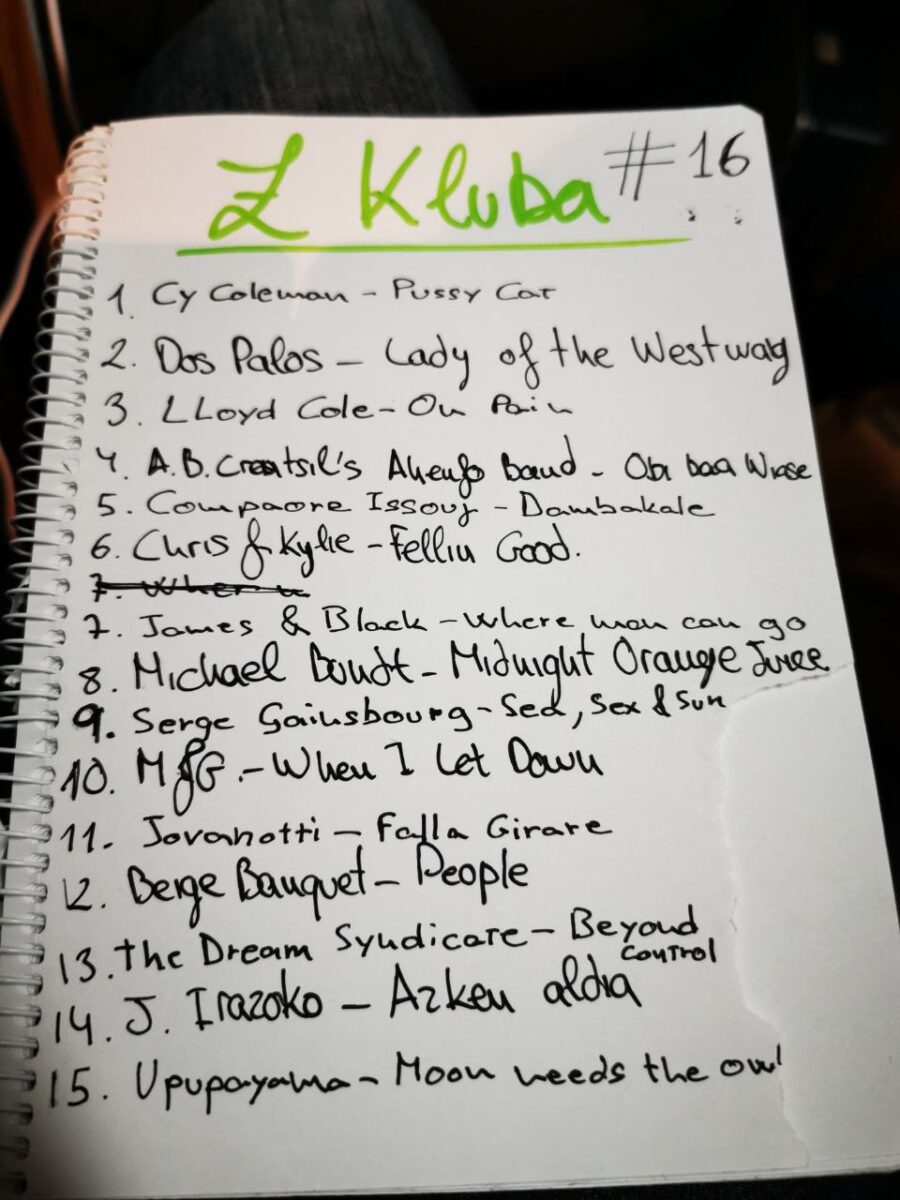 Z Kluba #16
1. Cy Coleman - Pussy Cat
2. Dos Palos - Lady of the Westway
3. LLoyd Cole - On Pain
4. A.B. Crentsil's Ahenfo Band - Obi baa Wiase
5. Compaore Issouf - Dambakale
6. Chris & Kylie - Fellin Good.
7. When u
7. James & Black - Where man can go
8. Michael Boudt - Midnight Orange Juice
9. Serge Gainsbourg - Sea, Sex & Sun
10. M&G - When I Let Down
11. Jovanotti - Falla Girare
12. Beige Banquet - People
13. The Dream Syndicate - Beyond
Control
14. J. Irazoko - Azken aldia
15. Upupayama - Moon needs the owl